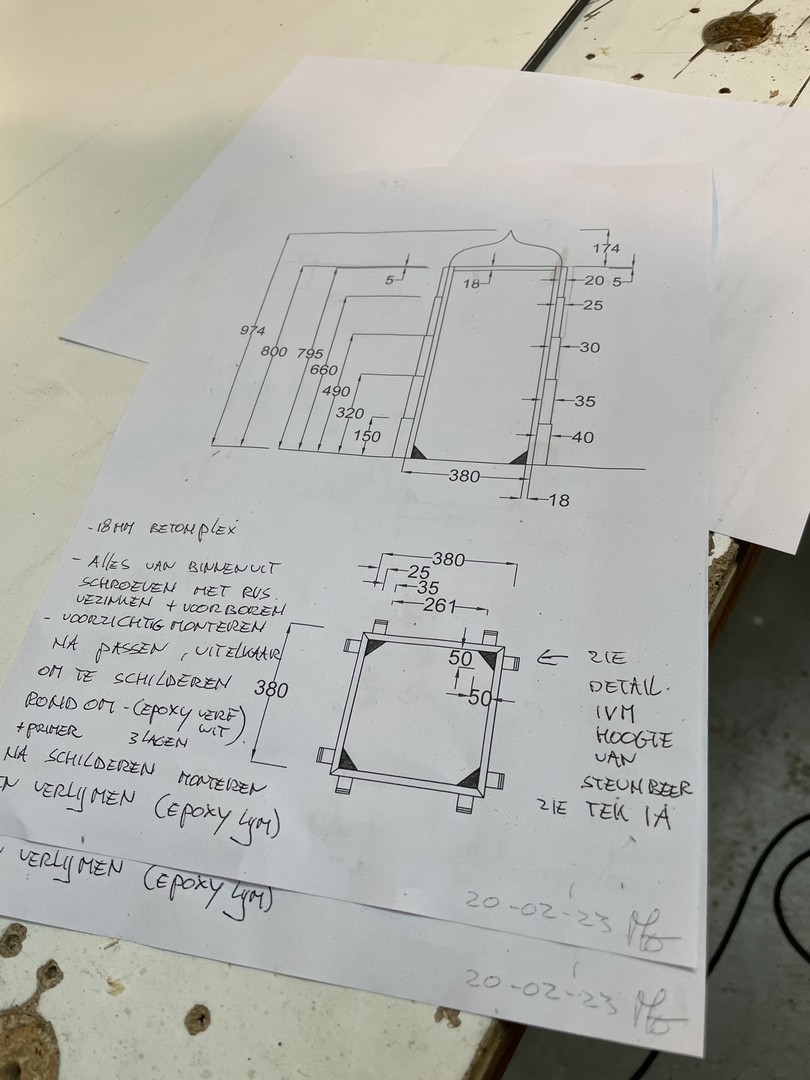 174
5
18
20 5
25
974
800
795
660
490
320
150
30
35
40
380
18
- 18 MM BETONPLEX
- ALLES VAN BINNENUIT
SCHROEVEN MET RVS.
VEZINKEN + VOORBOREN
- VOORZICHTIG MONTEREN
NA PASSEN, UITELKAAR
OM TE SCHILDEREN
RONDOM - (EPOXY VERF)
+ PRIMER 3 LAGEN WIT
NA SCHILDEREN MONTEREN
EN VERLYMEN (EPOXY LYM)
380
25
35
261
50
50
380
← ZIE
DETAIL.
IVM
HOOGTE
VAN
STEUNBEER
ZIE TEK 1A
20-02-23
VERLYMEN (EPOXY LYM)
20-02-23